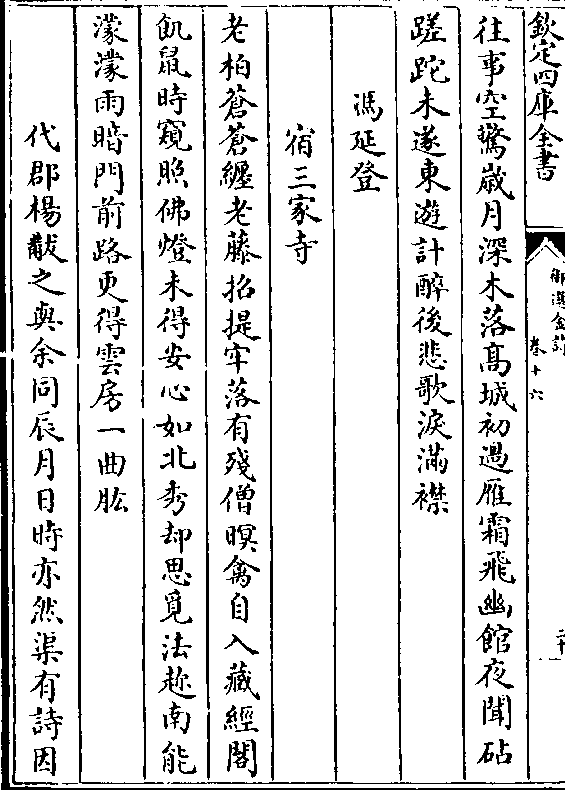 欽定四庫全書
御選金詩
卷十六
往事空驚歲月深木落髙城初過雁霜飛幽館夜聞砧
蹉跎未遂東遊計醉後悲歌淚滿襟
馮延登
宿三家寺
老柏蒼蒼纏老藤招提牢落有殘僧暝禽自入藏經閣
飢鼠時窺照佛燈未得安心如北秀却思覓法趂南能
濛濛雨暗門前路更得雲房一曲肱
代郡楊黻之與余同辰月日時亦然渠有詩因